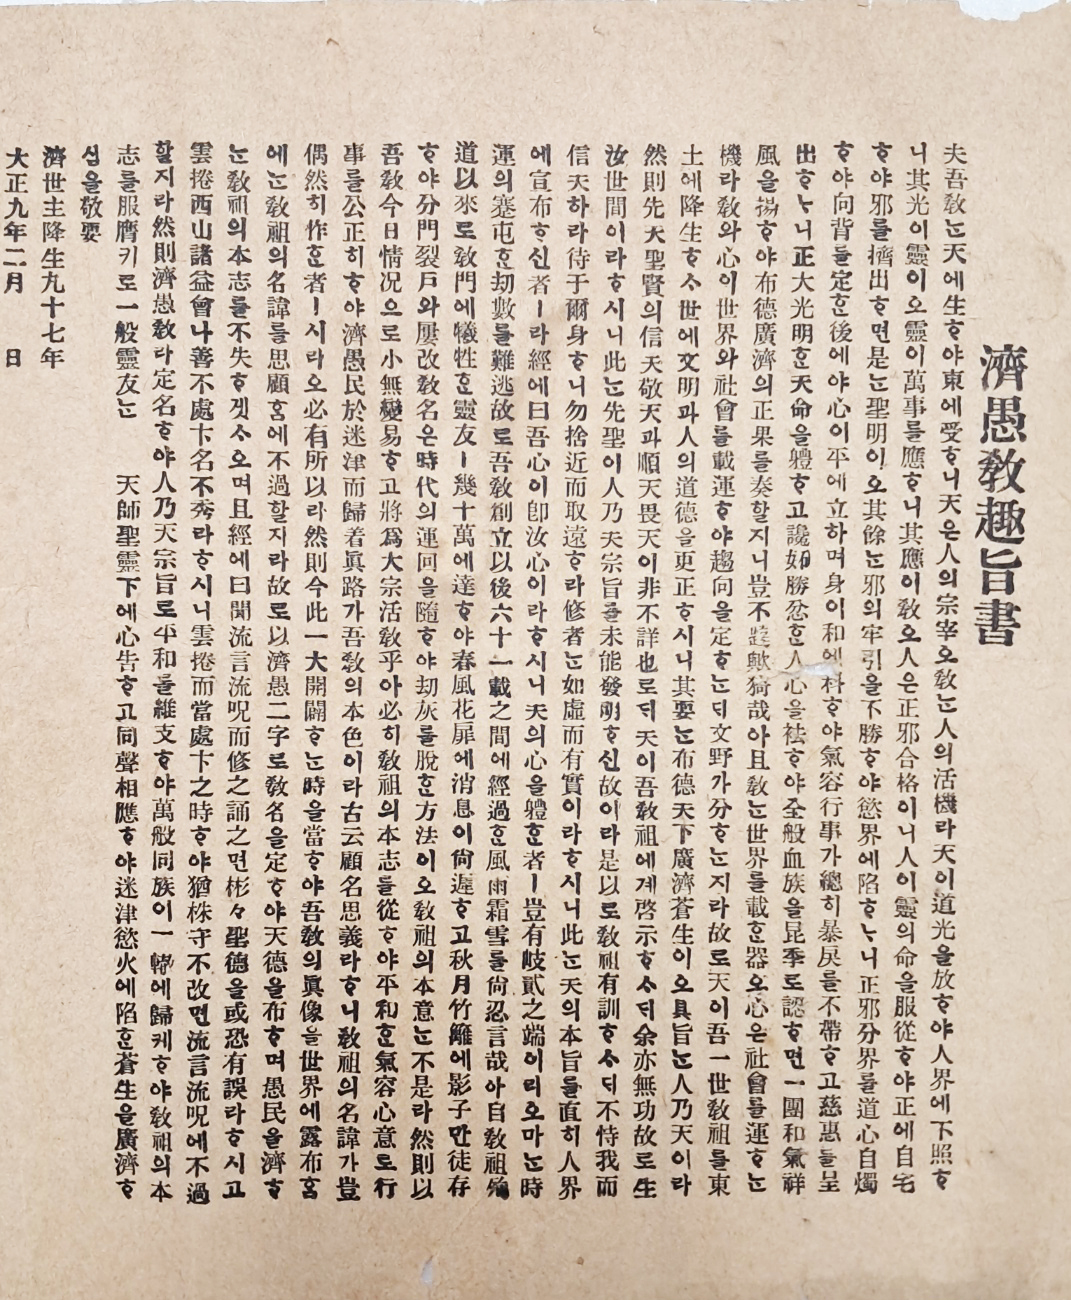 濟愚敎趣旨書
夫吾敎ᄂᆞᆫ天에生ᄒᆞ야東에受ᄒᆞ니天은人의宗宰오敎ᄂᆞᆫ人의活機라天이道光을放ᄒᆞ야人界에下照ᄒᆞ
니其光이靈이오靈이萬事를應ᄒᆞ니其應이敎오人은正邪合格이니人이靈의命을服從ᄒᆞ야正에自宅
ᄒᆞ야邪를擠出ᄒᆞ면是ᄂᆞᆫ聖明이오其餘ᄂᆞᆫ邪의牢引을不勝ᄒᆞ야慾界에陷ᄒᆞᄂᆞ니正邪分界를道心自燭
ᄒᆞ야向背를定ᄒᆞᆫ後에야心이平에立하며身이和에科ᄒᆞ야氣容行事가總히暴戾를不帶ᄒᆞ고慈惠를呈
出ᄒᆞᄂᆞ니正大光明ᄒᆞᆫ天命을體ᄒᆞ고讒妬勝忿ᄒᆞᆫ人心을袪ᄒᆞ야全般血族을昆季로認ᄒᆞ면一團和氣祥
風을揚ᄒᆞ야布德廣濟의正果를奏할지니豈不歟猗哉아且敎ᄂᆞᆫ世界를載ᄒᆞᆫ器오心은社會를運ᄒᆞᄂᆞᆫ
機라敎와心이世界와社會를載運ᄒᆞ야趨向을定ᄒᆞᄂᆞᆫᄃᆡ文野가分ᄒᆞᄂᆞᆫ지라故로天이吾一世敎祖를東
土에降生ᄒᆞᄉᆞ世에文明과人의道德을更正ᄒᆞ시니其要ᄂᆞᆫ布德天下廣濟蒼生이오具旨ᄂᆞᆫ人乃天이라
然則先天聖賢의信天敬天과順天畏天이非不詳也로ᄃᆡ天이吾敎祖에게啓示ᄒᆞᄉᆞᄃᆡ余亦無功故로生
汝世間이라ᄒᆞ시니此ᄂᆞᆫ先聖이人乃天宗旨를未能發明ᄒᆞ신故이라是以로敎祖有訓ᄒᆞᄉᆞᄃᆡ不恃我而
信天하라待于爾身ᄒᆞ니勿捨近而取遠ᄒᆞ라修者ᄂᆞᆫ如虛而有實이라ᄒᆞ시니此ᄂᆞᆫ天의本旨를直히人界
에宣布ᄒᆞ신者ㅣ라經에曰吾心이卽汝心이라ᄒᆞ시니天의心을體ᄒᆞᆫ者ㅣ豈有岐貳之端이리오마ᄂᆞᆫ時
運의蹇屯ᄒᆞᆫ劫數를難逃故로吾敎創立以後六十一載之間에經過ᄒᆞᆫ風雨霜雪를尙忍言哉아自敎祖殉
道以來로敎門에犧牲ᄒᆞᆫ靈友ㅣ幾十萬에達ᄒᆞ야春風花扉에消息이尙遲ᄒᆞ고秋月竹籬에影子만徒存
ᄒᆞ야分門裂戶와屢改敎名은時代의運回을隨ᄒᆞ야劫灰를脫ᄒᆞᆫ方法이오敎祖의本意ᄂᆞᆫ不是라然則以
吾敎今日情況으로小無變易ᄒᆞ고將爲大宗活敎乎아必히敎祖의本志를從ᄒᆞ야平和ᄒᆞᆫ氣容心意로行
事를公正히ᄒᆞ야濟愚民於迷津而歸着眞路가吾敎의本色이라古云顧名思義라ᄒᆞ니敎祖의名諱가豈
偶然히作ᄒᆞᆫ者ㅣ시라오必有所以라然則今此一大開闢ᄒᆞᄂᆞᆫ時을當ᄒᆞ야吾敎의眞像을世界에露布ᄒᆞᆷ
에ᄂᆞᆫ敎祖의名諱를思顧ᄒᆞᆷ에不過할지라故로以濟愚二字로敎名을定ᄒᆞ야天德을布ᄒᆞ며愚民을濟ᄒᆞ
ᄂᆞᆫ敎祖의本志를不失ᄒᆞ겟ᄉᆞ오며且經에曰聞流言流呪而修之誦之면彬々聖德을或恐有誤라ᄒᆞ시고
雲捲西山諸益會나善不處卞名不秀라ᄒᆞ시니雲捲而當處卞之時ᄒᆞ야猶株守不改면流言流呪에不過
할지라然則濟愚敎라定名ᄒᆞ야人乃天宗旨로平和를維支ᄒᆞ야萬般同族이一轉에歸케ᄒᆞ야敎祖의本
志를服膺키로一般靈友ᄂᆞᆫ　　天師聖靈下에心告ᄒᆞ고同聲相應ᄒᆞ야迷津慾火에陷ᄒᆞᆫ蒼生을廣濟ᄒᆞ
심을敬要
濟世主降生九十七年
大正九年二月　　日